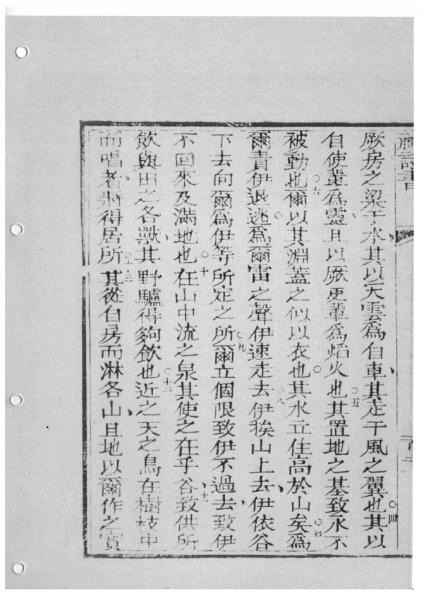 厥房之梁于水其以天雲為自車其走于風之翼也其以
自使輩為靈且以厥吏輩為熖火也其置地之基致永不
被動也爾以其淵蓋之似以衣也其水立住高於山矣為
爾責伊退逃為爾雷之聲伊速走去伊挨山上去伊依谷
下去向爾為伊等所定之所爾立個限致伊不過去致伊
不回來及滿地也在山中流之泉其使之在乎谷致供所
飲與田之各獸其野驢得夠飲也近之天之鳥在樹枝中
而唱者將得居所其從自房而淋各山且地以爾作之實